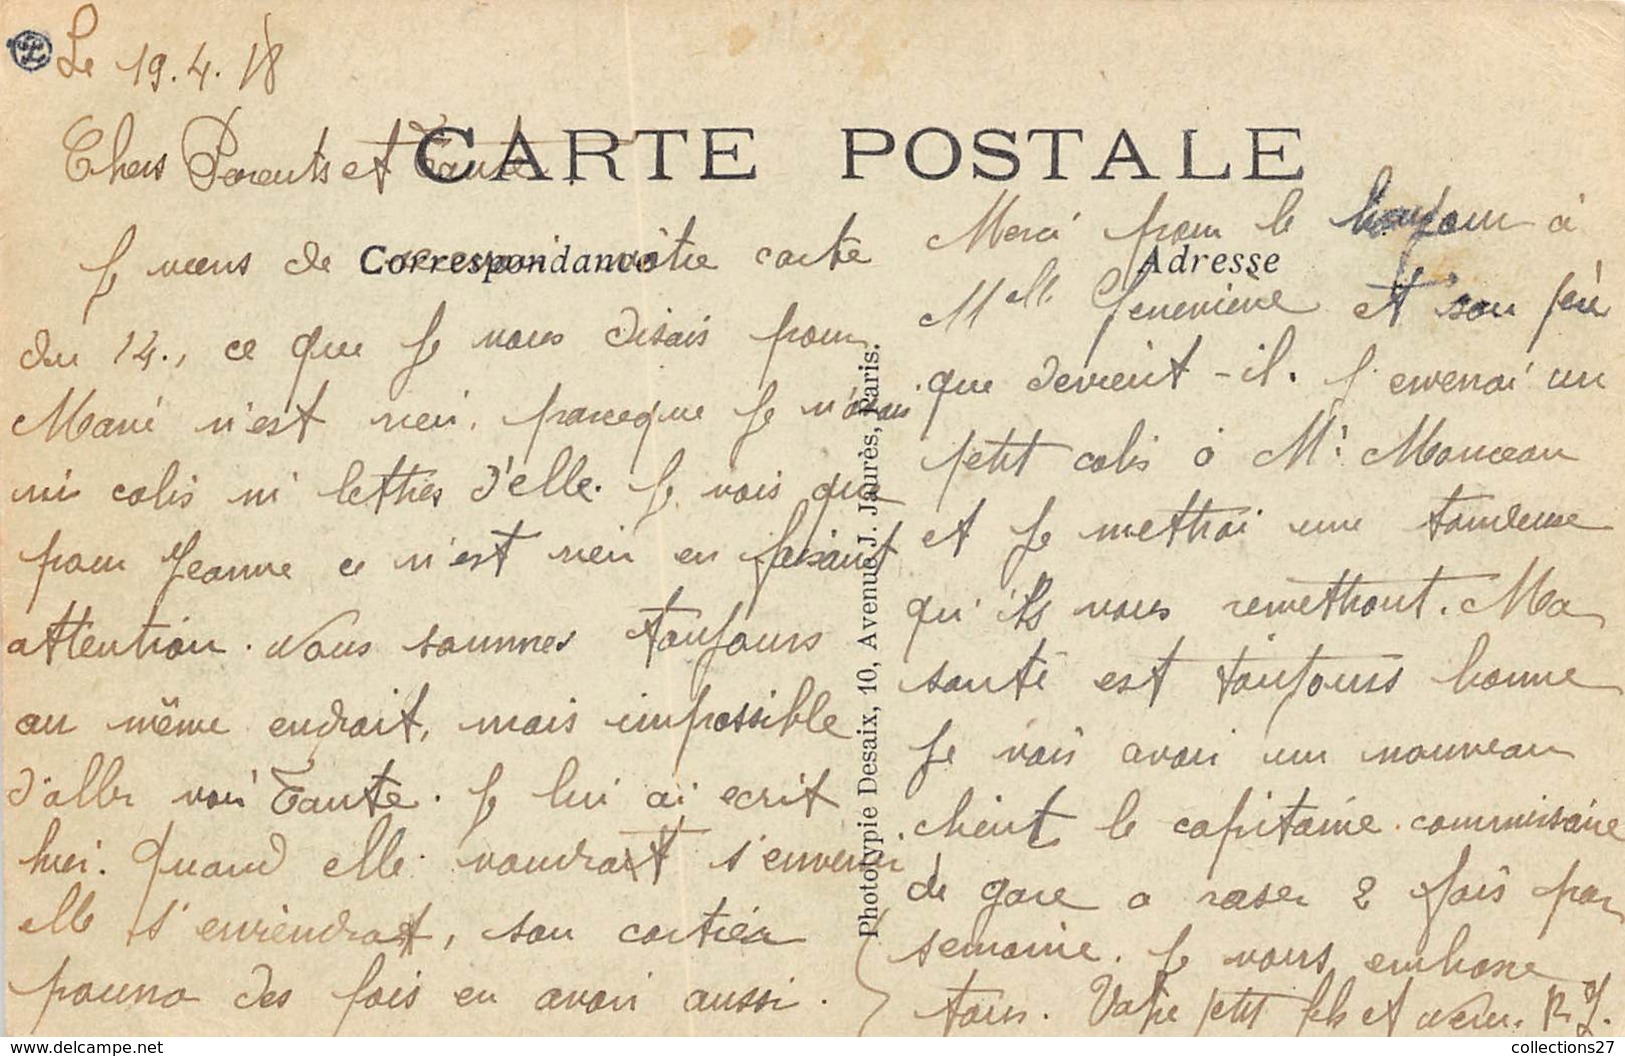 Le 19.4.18
CARTE POSTALE
Chers Parents et Tante.
Correspondance
Je viens de recevoir vôtre carte
du 14., ce que je vous disais pour
Marie n'est rien, parceque je n'avais
ni colis ni lettres d'elle. Je vois que
pour Jeanne ce n'est rien en faisant
attention. Nous sommes toujours
au même endroit, mais impossible
d'aller voir Tante. Je lui ai ecrit
hier. Quand elle voudrait s'en venir
elle s'en viendrat, son cartier
pourra des fois en avoir aussi.
Photolypie Desaix, 10, Avenue J. Jaurès, Paris.
Adresse
Merci pour le bonjour à
Melle Genevieve et son père
que devient-il. J'enverai un
petit colis à Mr Manceau
et je mettrai une
qu'ils vous remettront. Ma
santé est toujours bonne
Je vais avoir un nouveau
client le capitaine commissaire
de gare a raser 2 fois par
semaine. Je vous embrasse
tous. Votre petit fils et neveu. R. J.
collections27